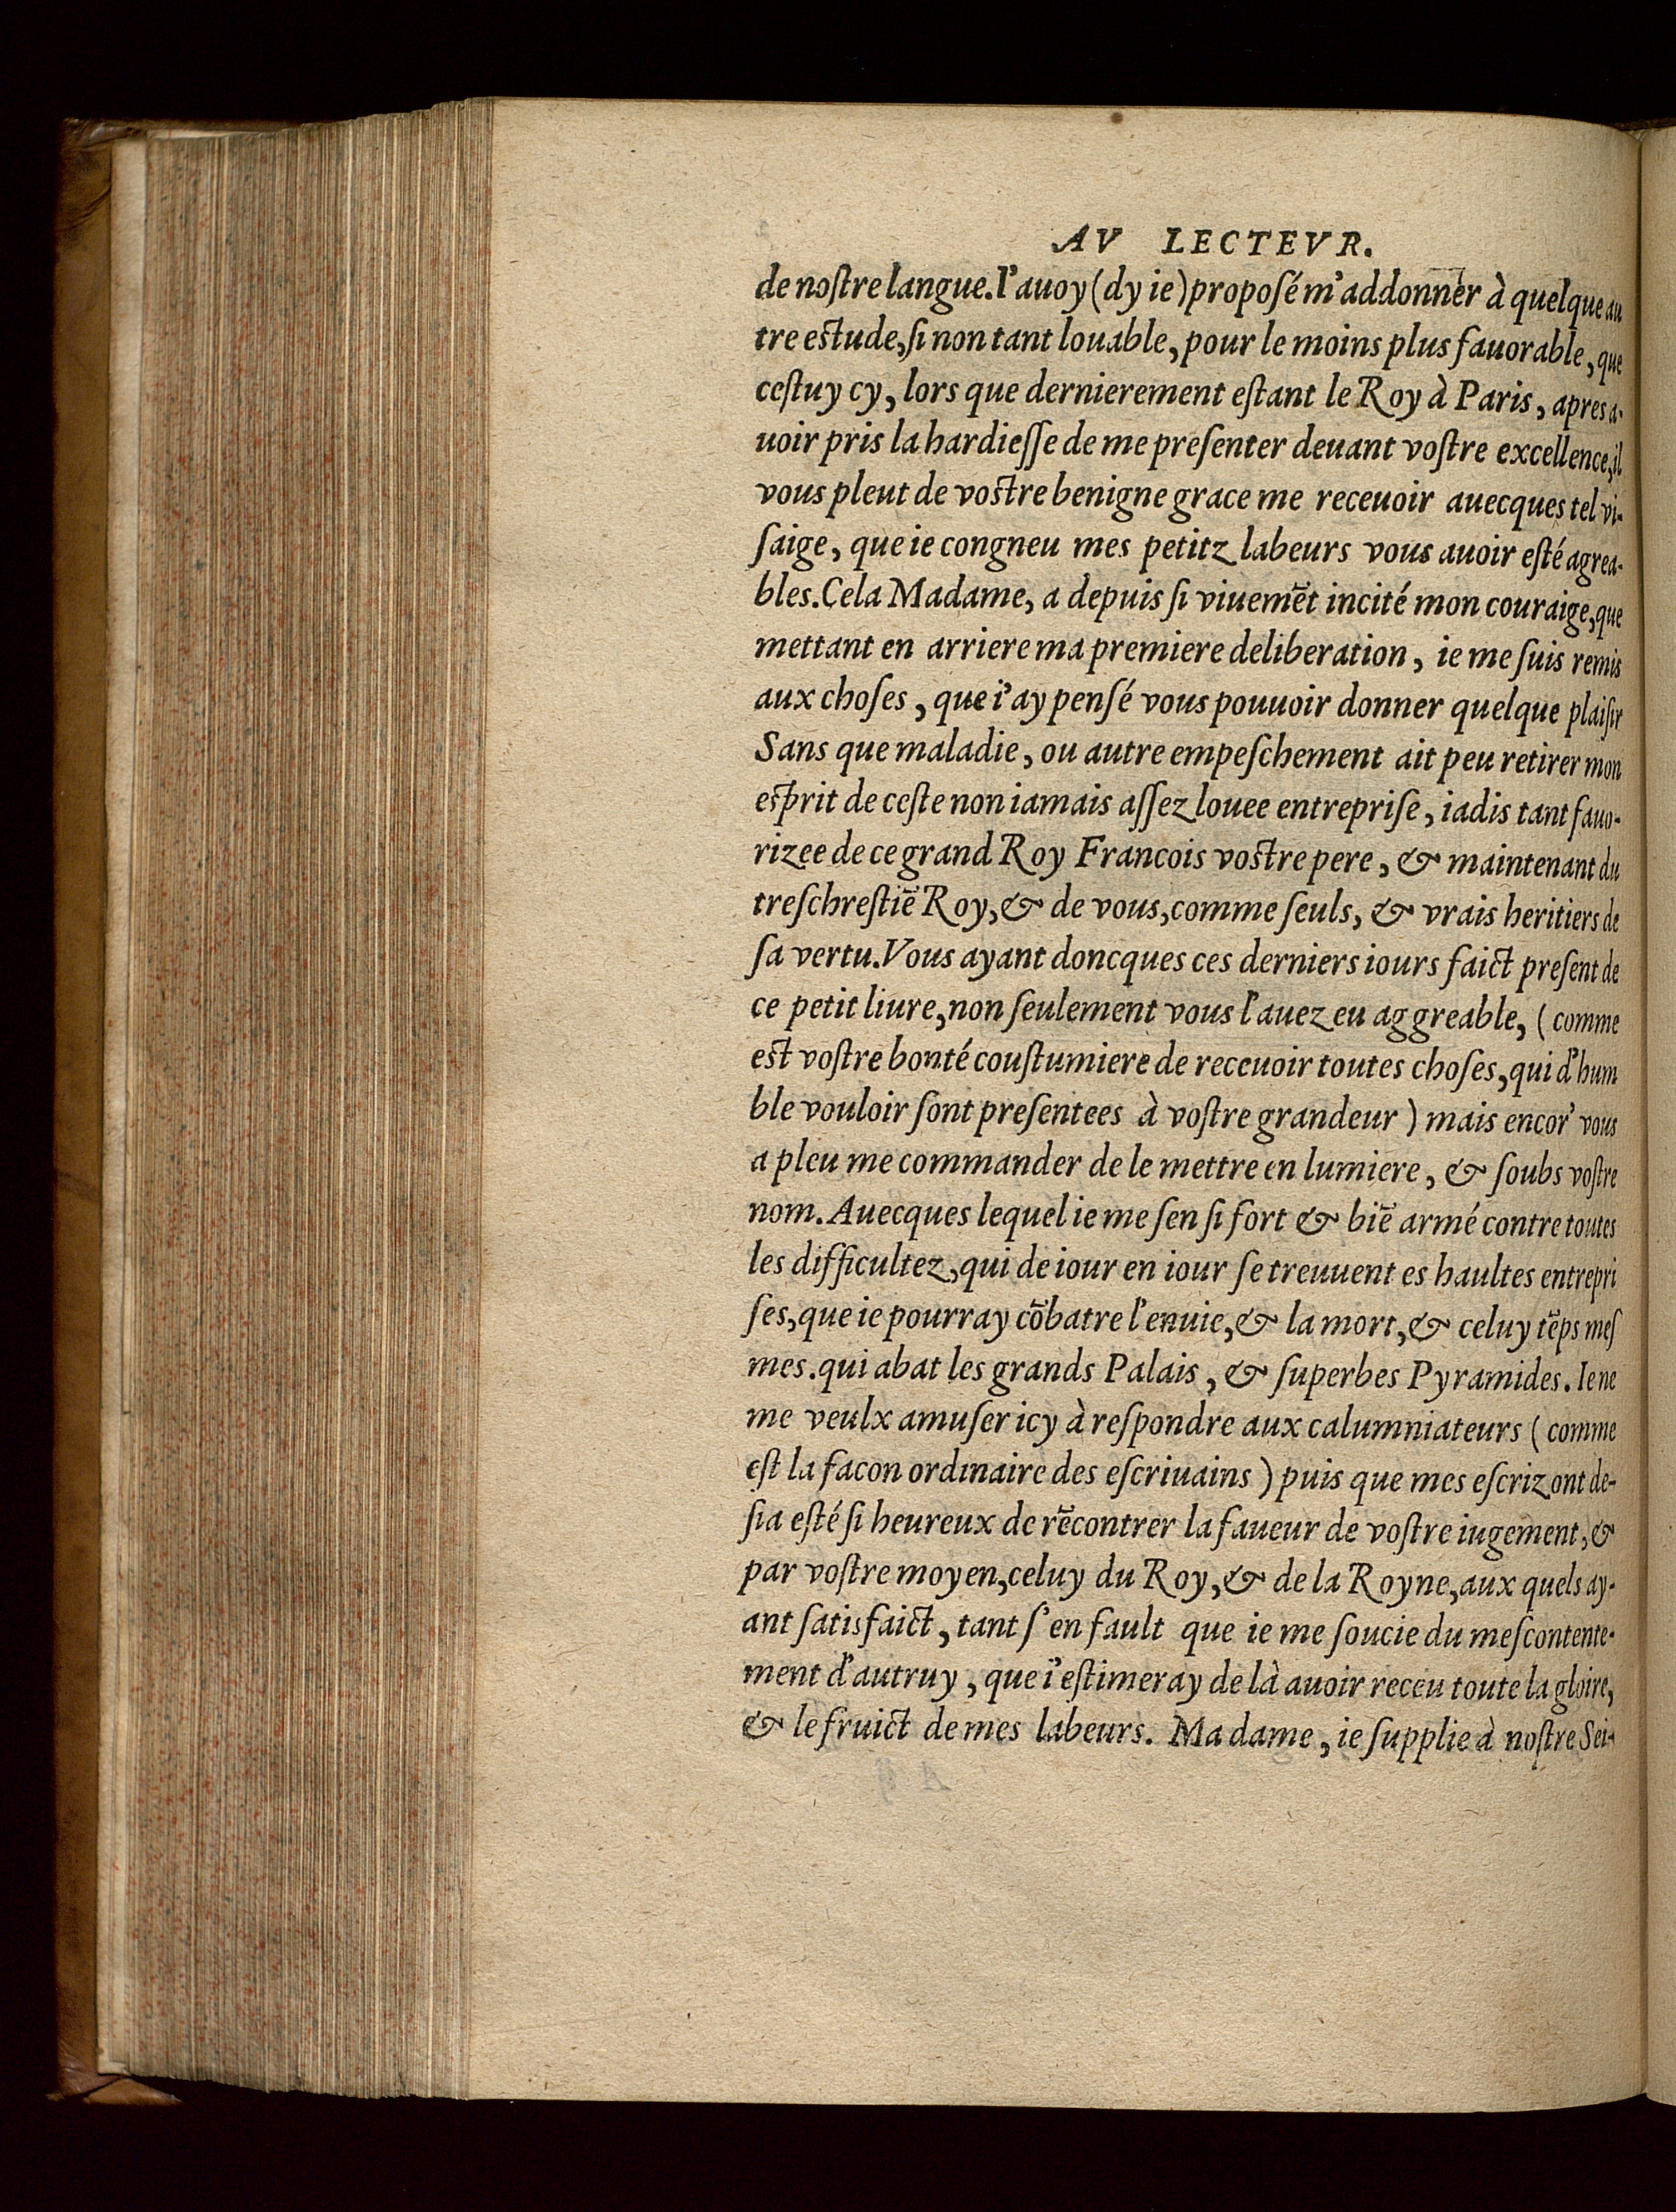 AV LECTEVR.
de noſtre langue. I'auoy (dy ie) propoſé m'addonner à quelque au
tre eſtude, ſi non tant louable, pour le moins plus fauorable, que
ceſtuy cy, lors que dernierement eſtant le Roy à Paris, apres a-
uoir pris la hardieſſe de me preſenter deuant voſtre excellence, il
vous pleut de voſtre benigne grace me receuoir auecques tel vi-
ſaige, que ie congneu mes petitz labeurs vous auoir eſté agrea-
bles. Cela Madame, a depuis ſi viuemēt incité mon couraige, que
mettant en arriere ma premiere deliberation, ie me ſuis remis
aux choſes, que i'ay penſé vous pouuoir donner quelque plaiſir
Sans que maladie, ou autre empeſchement ait peu retirer mon
eſprit de ceſte non iamais aſſez louee entrepriſe, iadis tant fauo-
rizee de ce grand Roy Francois voſtre pere, & maintenant du
treſchreſtiē Roy, & de vous, comme ſeuls, & vrais heritiers de
ſa vertu. Vous ayant doncques ces derniers iours faict preſent de
ce petit liure, non ſeulement vous l'auez eu aggreable, (comme
eſt voſtre bonté couſtumiere de receuoir toutes choſes, qui d'hum
ble vouloir ſont preſentees à voſtre grandeur) mais encor' vous
a pleu me commander de le mettre en lumiere, & ſoubs voſtre
nom. Auecques lequel ie me ſen ſi fort & biē armé contre toutes
les difficultez, qui de iour en iour ſe treuuent es haultes entrepri
ſes, que ie pourray cōbatre l'enuie, & la mort, & celuy tēps meſ
mes. qui abat les grands Palais, & ſuperbes Pyramides. Ie ne
me veulx amuſer icy à reſpondre aux calumniateurs (comme
eſt la facon ordinaire des eſcriuains) puis que mes eſcriz ont de-
ſia eſté ſi heureux de rēcontrer la faueur de voſtre iugement, &
par voſtre moyen, celuy du Roy, & de la Royne, aux quels ay-
ant ſatisfaict, tant ſ'en fault que ie me ſoucie du meſcontente-
ment d'autruy, que i'eſtimeray de là auoir receu toute la gloire,
& le fruict de mes labeurs. Madame, ie ſupplie à noſtre Sei-